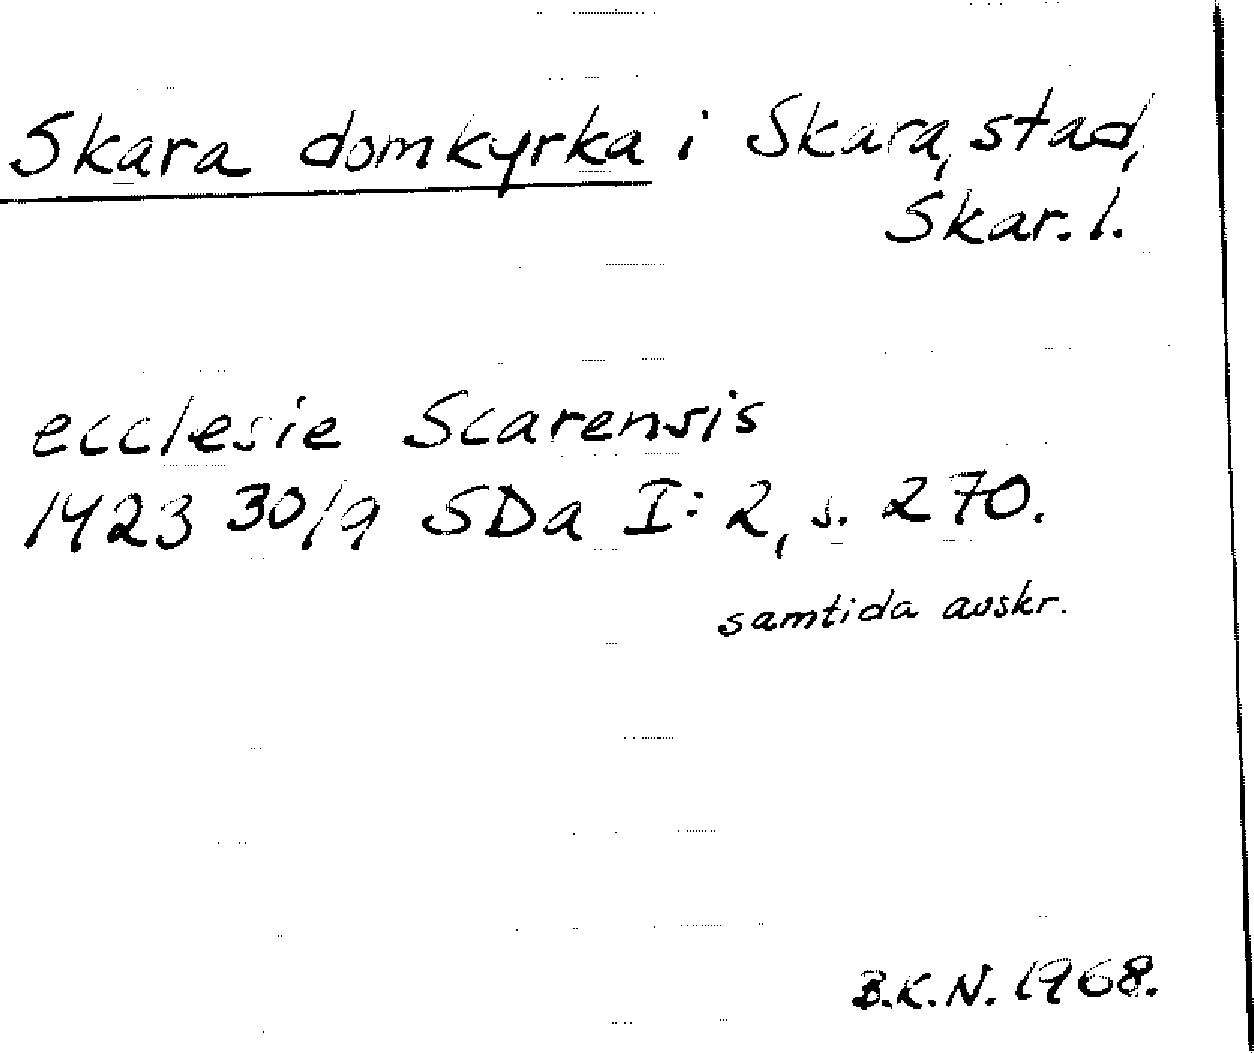 Skara domkyrka i Skara, stad,
Skar. l.
ecclesie Scarensis
1423 30/9 SDa I: 2, s. 270.
samtida avskr.
B.K.N. 1968.